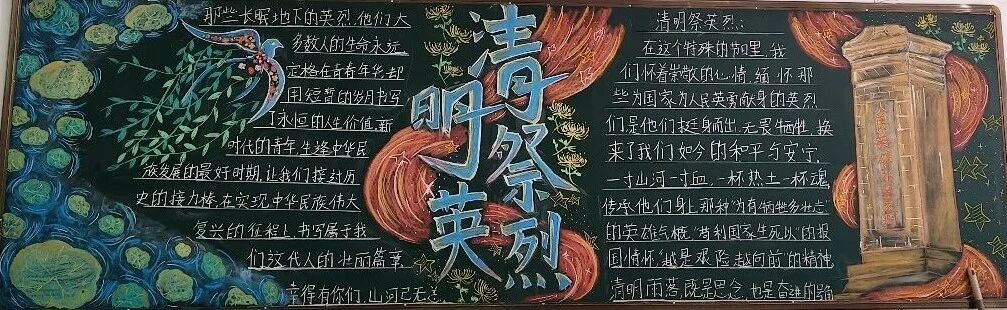 那些长眠地下的英烈,他们大
多数人的生命永远
定格在青春年华,却
用短暂的岁月书写
了永恒的人生价值,新
时代的青年生逢中华民
族发展的最好时期,让我们接过历
史的接力棒,在实现中华民族伟大
复兴的征程上书写属于我
们这代人的壮丽篇章
幸得有你们,山河已无恙
清明祭英烈
清明祭英烈:
在这个特殊的节日里,我
们怀着崇敬的心情,缅怀那
些为国家为人民英勇献身的英烈
们是他们挺身而出,无畏牺牲,换
来了我们如今的和平与安宁,
一寸山河一寸血,一杯热土一杯魂,
传承他们身上那种"为有牺牲多壮志"
的英雄气概,"苟利国家生死以"的报
国情怀"越是艰险越向前"的精神
清明雨落,既是思念,也是奋进的号角